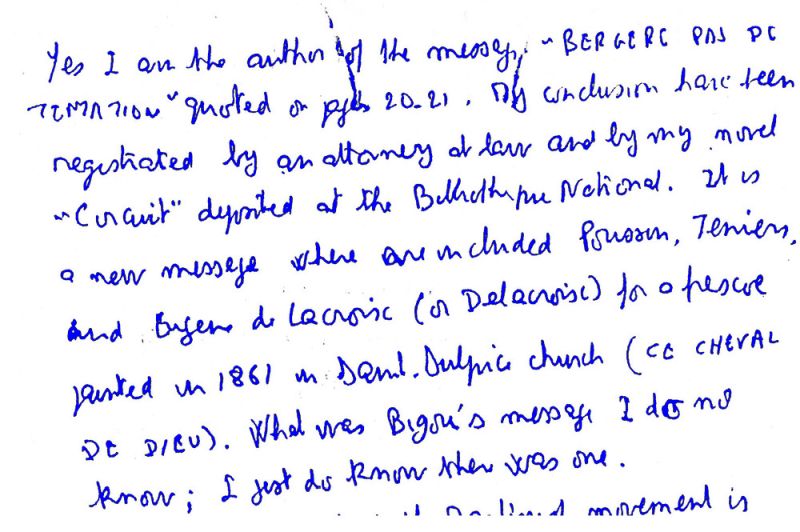 Yes I am the author of the message, "BERGERE PAS DE
TEMATION" quoted on pges 20-21. My conclusion have been
registrated by an attorney at law and by my novel
"Circuit" deposited at the National. It is
a new message where are included Poussin, Teniers,
and Eugene de Lacroisc (or Delacroisc) for a frescoe
painted in 1861 in church (CE CHEVAL
DE DIEU). What was Bigou's message I do no
know; I just do know ther was one.
movement is